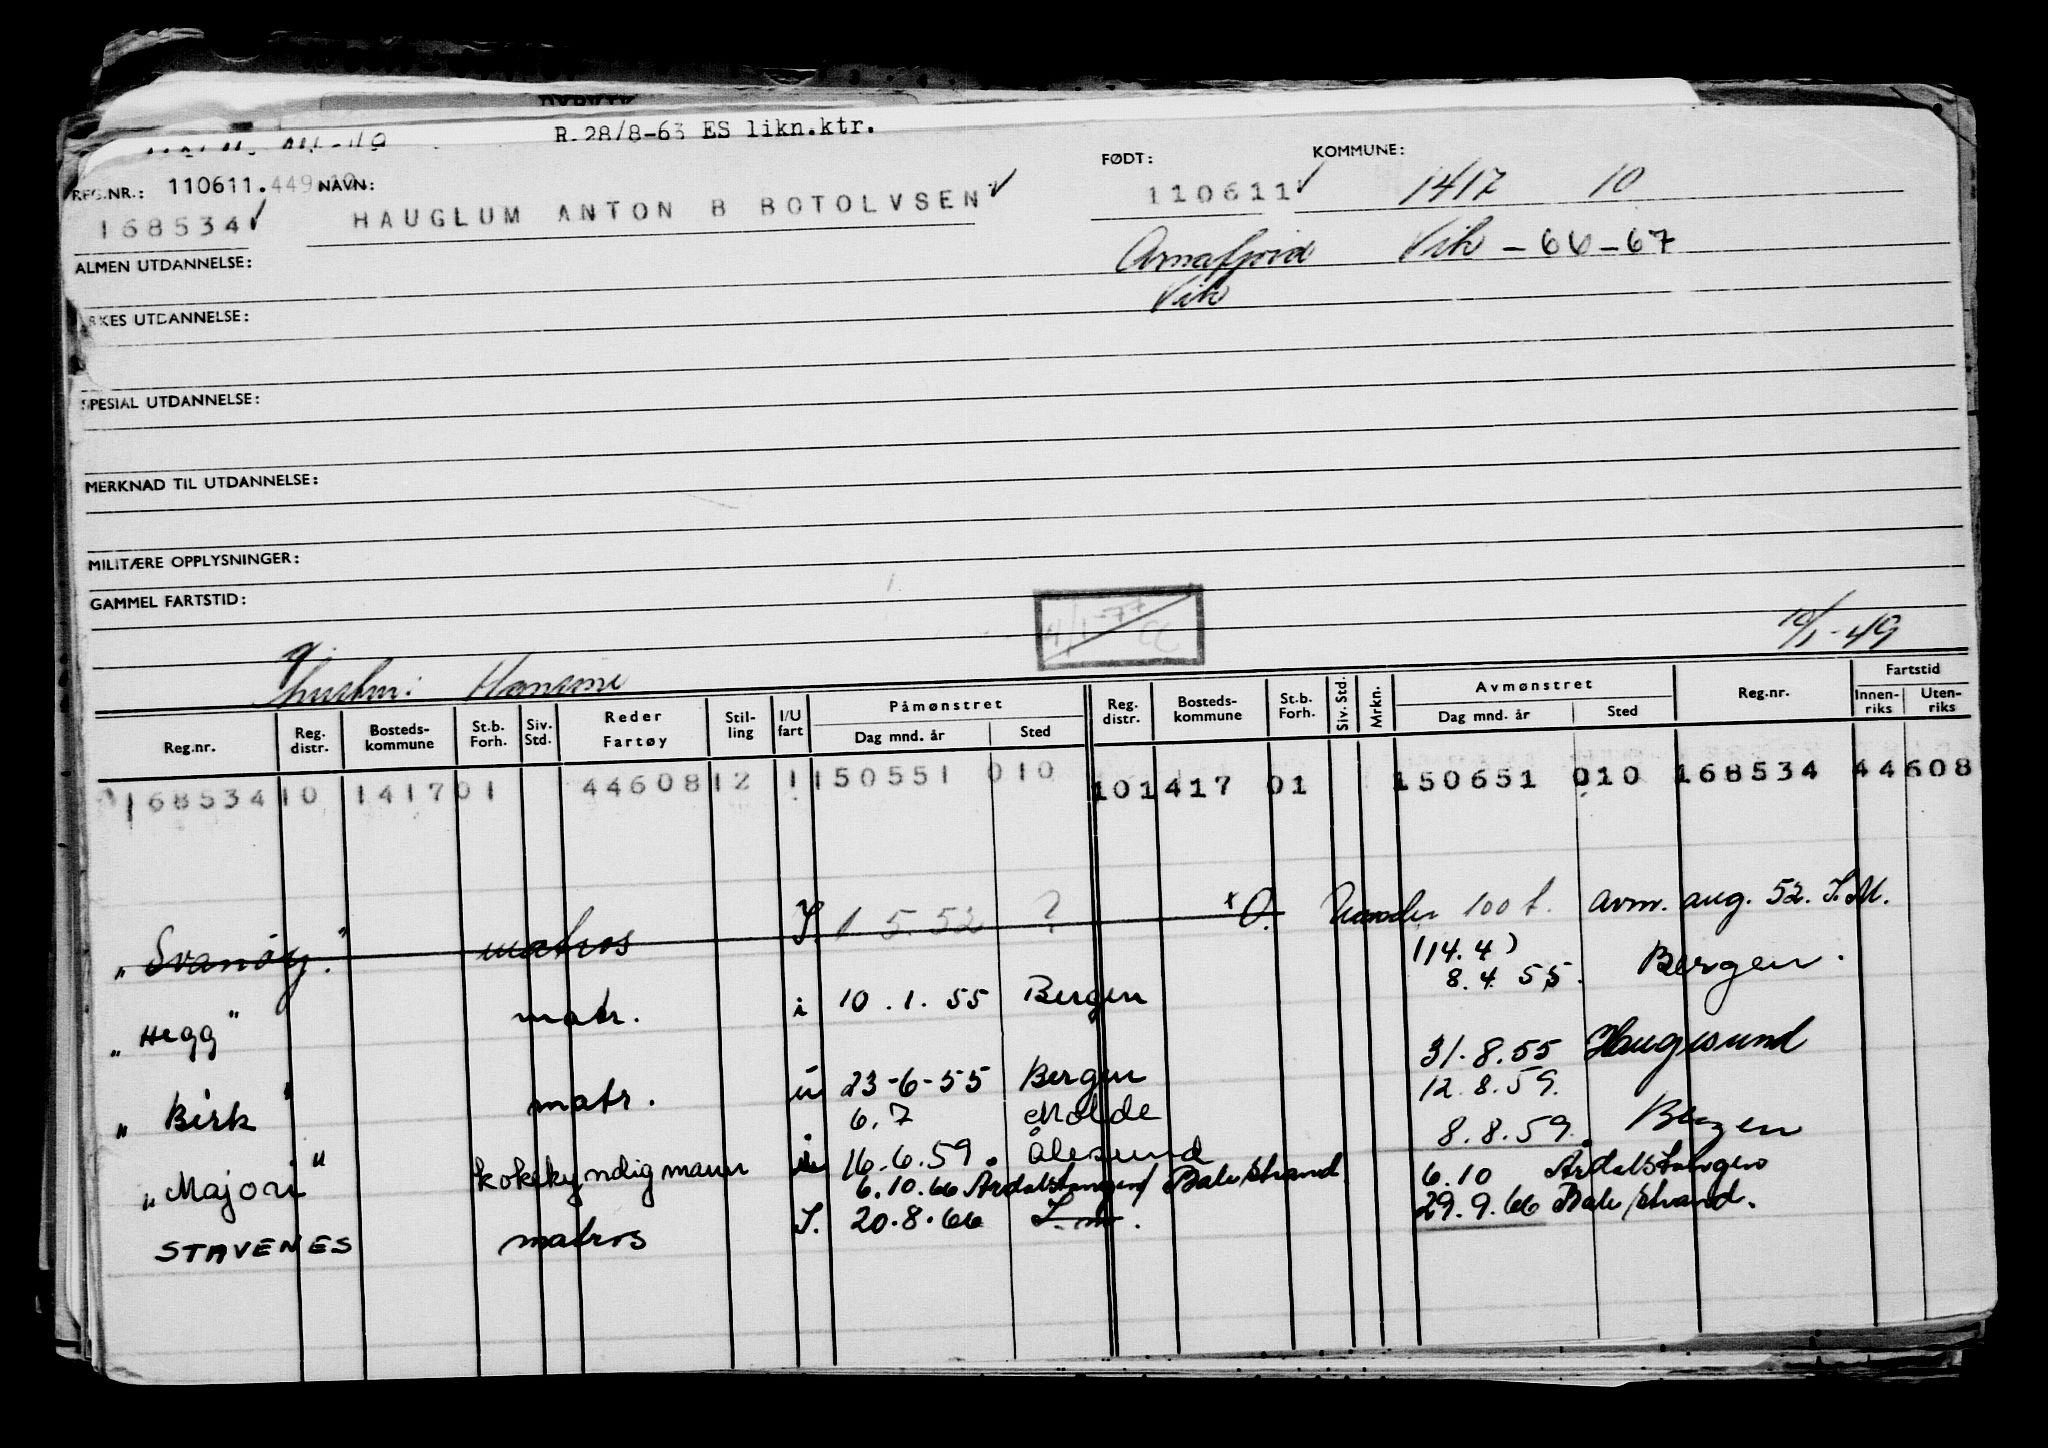 R.28/8-63 ES likn.ktr.
REG.NR.: 110611.449 NAVN: FØDT: KOMMUNE:
168534 HAUGLUM ANTON B BOTOLVSEN 110611 1417 10
ALMEN UTDANNELSE: Arnafjord Vik - 66-67
Vik
RKES UTDANNELSE:
SPESIAL UTDANNELSE:
MERKNAD TIL UTDANNELSE:
MILITÆRE OPPLYSNINGER:
GAMMEL FARTSTID:
10/1-49
g. hustru: Hansine
Reg.nr. Reg. distr. Bosteds-kommune St.b. Forh. Siv. Std. Reder Fartøy Stil-ling I/U fart Påmønstret Dag mnd. år Sted Reg. distr. Bosteds-kommune St.b. Forh. Siv. Std. Mrkn. Avmønstret Dag mnd. år Sted Reg.nr. Fartstid Innen-riks Uten-riks
168534 10 1417 01 44608 12 1 150551 010 10 1417 01 150651 010 168534 44608
"Svanöy". matros I. 1 5.52 ? O. Under 100 t. avm. aug. 52. I.M.
"Hegg" matr. i 10.1.55 Bergen (14.4) 8.4.55. Bergen.
"Birk" matr. u 23-6-55 Bergen 31.8.55 Haugesund
6.7 Molde 12.8.59.
"Majori" kokekyndigmann 16.6.59. Ålesund 8.8.59. Bergen
6.10.66 Årdalstangen/Balestrand 6.10 Årdalstangen
STAVENES matros I. 20.8.66 I.m. 29.9.66 Balestrand.